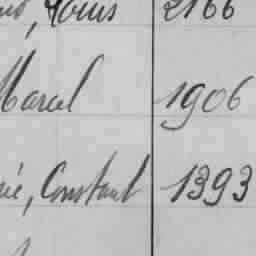 Louis 2166
Marcel 1906
Constant 1393